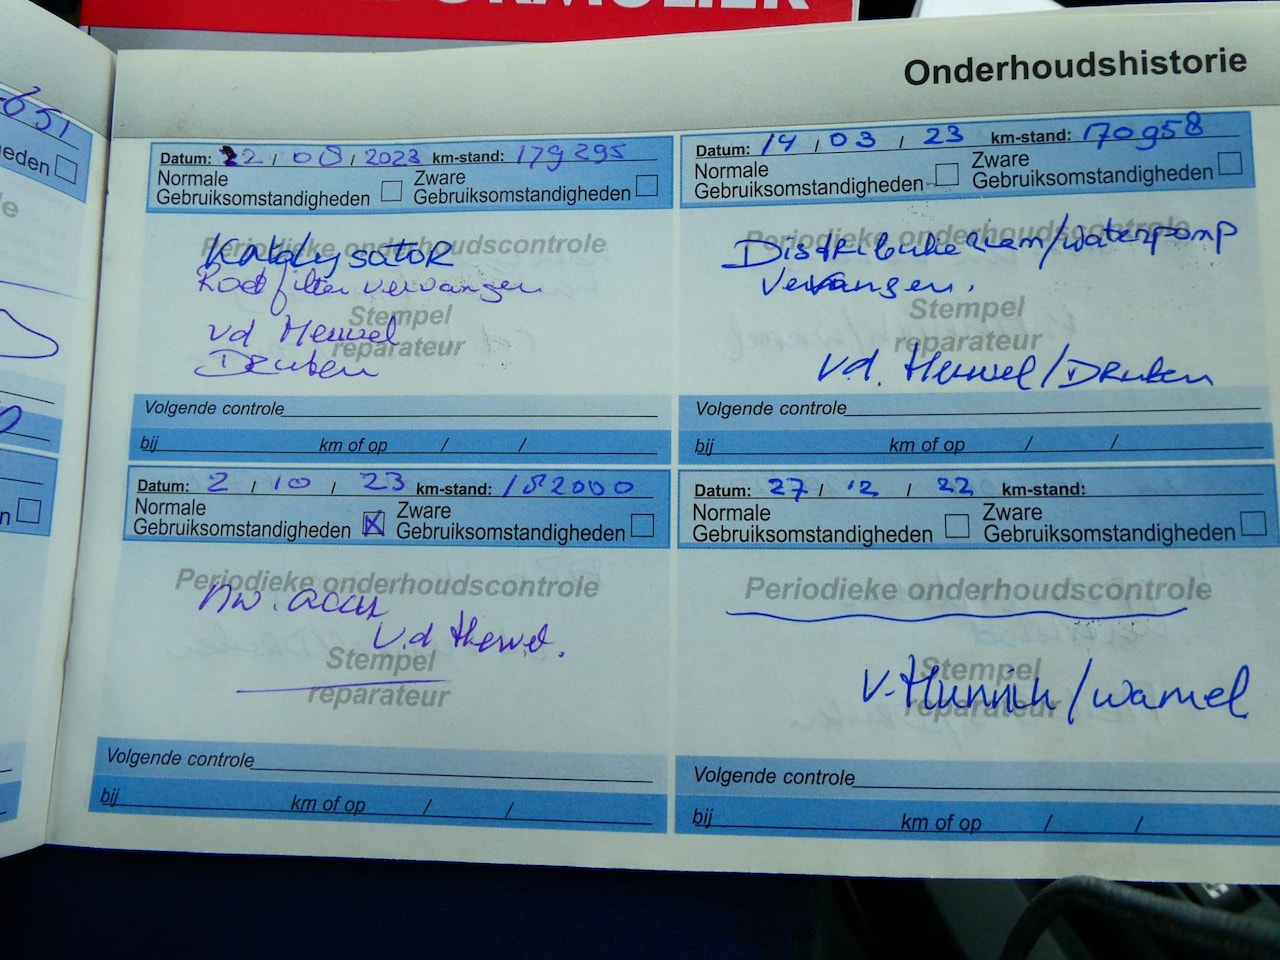 Onderhoudshistorie
651
Datum: 22 / 08 / 2023 km-stand: 179295
Normale
Gebruiksomstandigheden
Zware
Gebruiksomstandigheden
Periodieke onderhoudscontrole
Katalysator
Roetfilter vervangen
Stempel
reparateur
vd Heuvel
Druten
Volgende controle
bij km of op / /
Datum: 14 / 03 / 23 km-stand: 170958
Normale
Gebruiksomstandigheden
Zware
Gebruiksomstandigheden
Periodieke onderhoudscontrole
Distributieriem/waterpomp
Vervangen.
Stempel
reparateur
v.d. Heuvel/Druten
Volgende controle
bij km of op / /
Datum: 2 / 10 / 23 km-stand: 182000
Normale
Gebruiksomstandigheden
Zware
Gebruiksomstandigheden
Periodieke onderhoudscontrole
nw. accu
v.d Heuvel.
Stempel
reparateur
Volgende controle
bij km of op / /
Datum: 27 / 12 / 22 km-stand:
Normale
Gebruiksomstandigheden
Zware
Gebruiksomstandigheden
Periodieke onderhoudscontrole
Stempel
reparateur
/wamel
Volgende controle
bij km of op / /